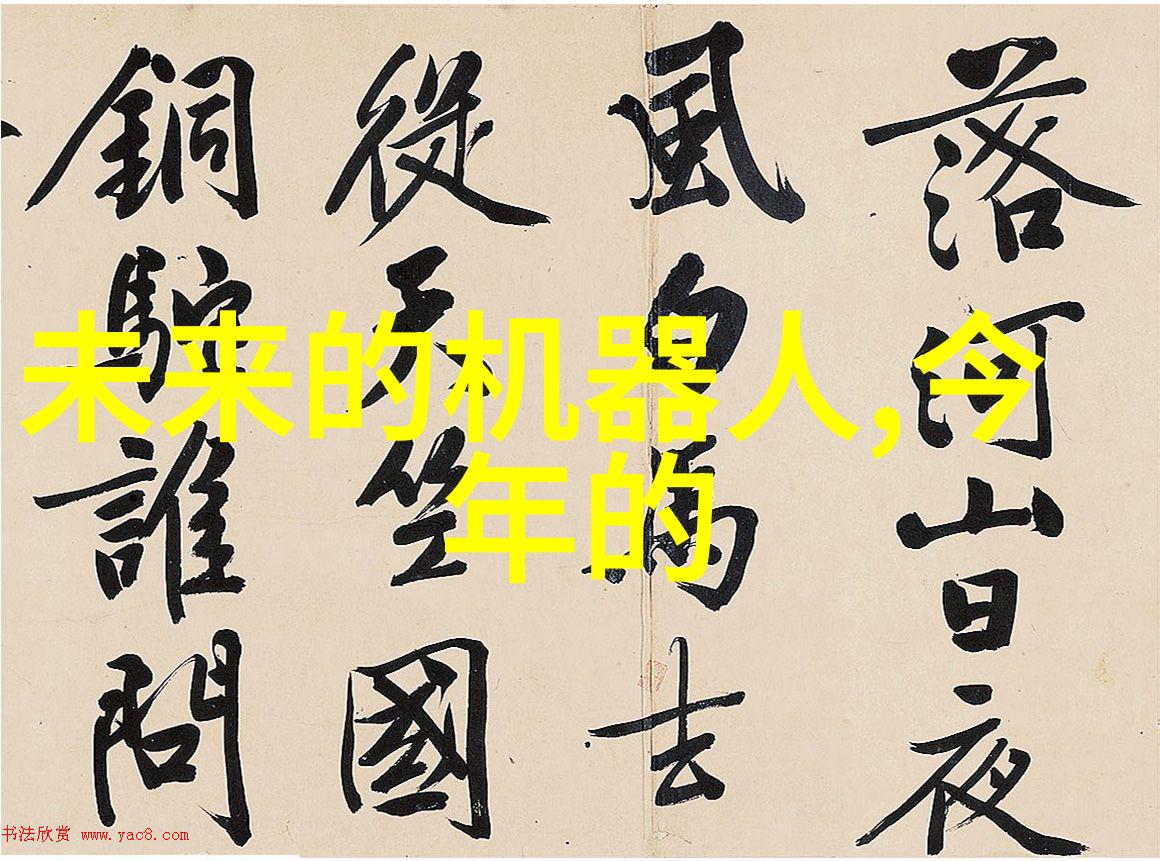 落河山日夜
風白馬去
從天竺國
銅駝誰問
未来的机器人,今
年的
书法欣赏 www.yac8.com